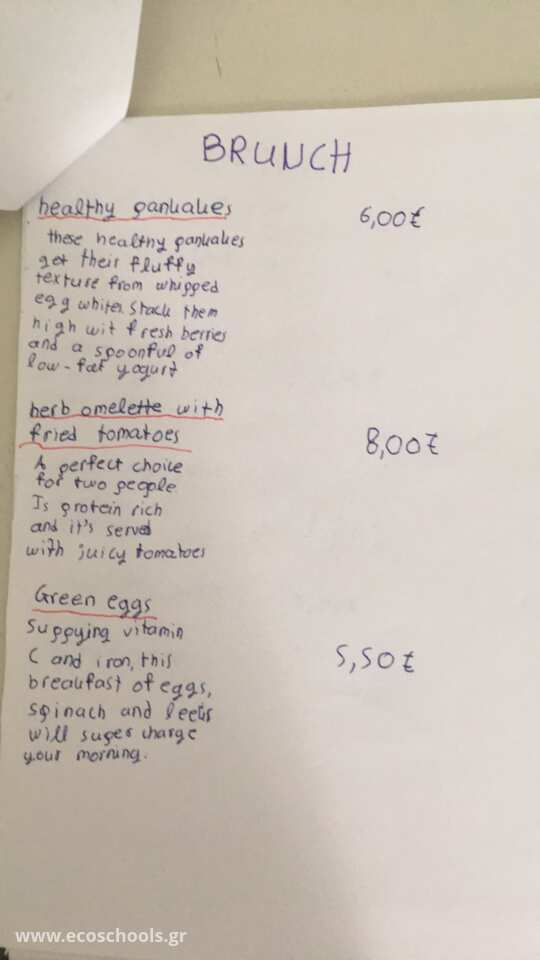 BRUNCH
healthy pankakes 6,00€
these healthy pankakes
get their fluffy
texture from whipped
egg whites. Stack them
high wit fresh berries
and a spoonful of
low-fat yogurt
herb omelette with
fried tomatoes 8,00€
A perfect choice
for two people
Is protein rich
and it's served
with juicy tomatoes
Green eggs
Suppying vitamin
C and iron, this 5,50€
breakfast of eggs,
spinach and leeks
will super charge
your morning.
www.ecoschools.gr